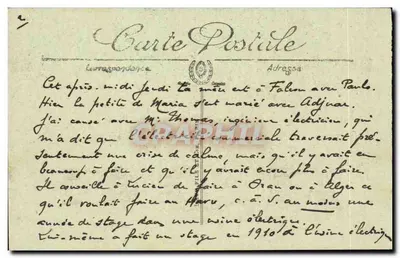 Carte Postale
Correspondance
Adresse
Cet après-midi Jeudi la mère est à Falron avec Paulo.
Hier la petite de Maria s'est marié avec Adjuar.
J'ai causé avec Mr Thomas, ingénieur électricien, qui
m'a dit que l'électricité traversait pré-
sentement une crise de calme, mais qu'il y avait en
beaucoup à faire et qu'il y aurait encore plus à faire.
Il conseille à Lucien de faire à Oran ou à Alger ce
qu'il voulait faire au Havre, c. à. d. au moins une
année de stage dans une usine électrique.
Lui-même a fait un stage en 1910 à l'usine électrique